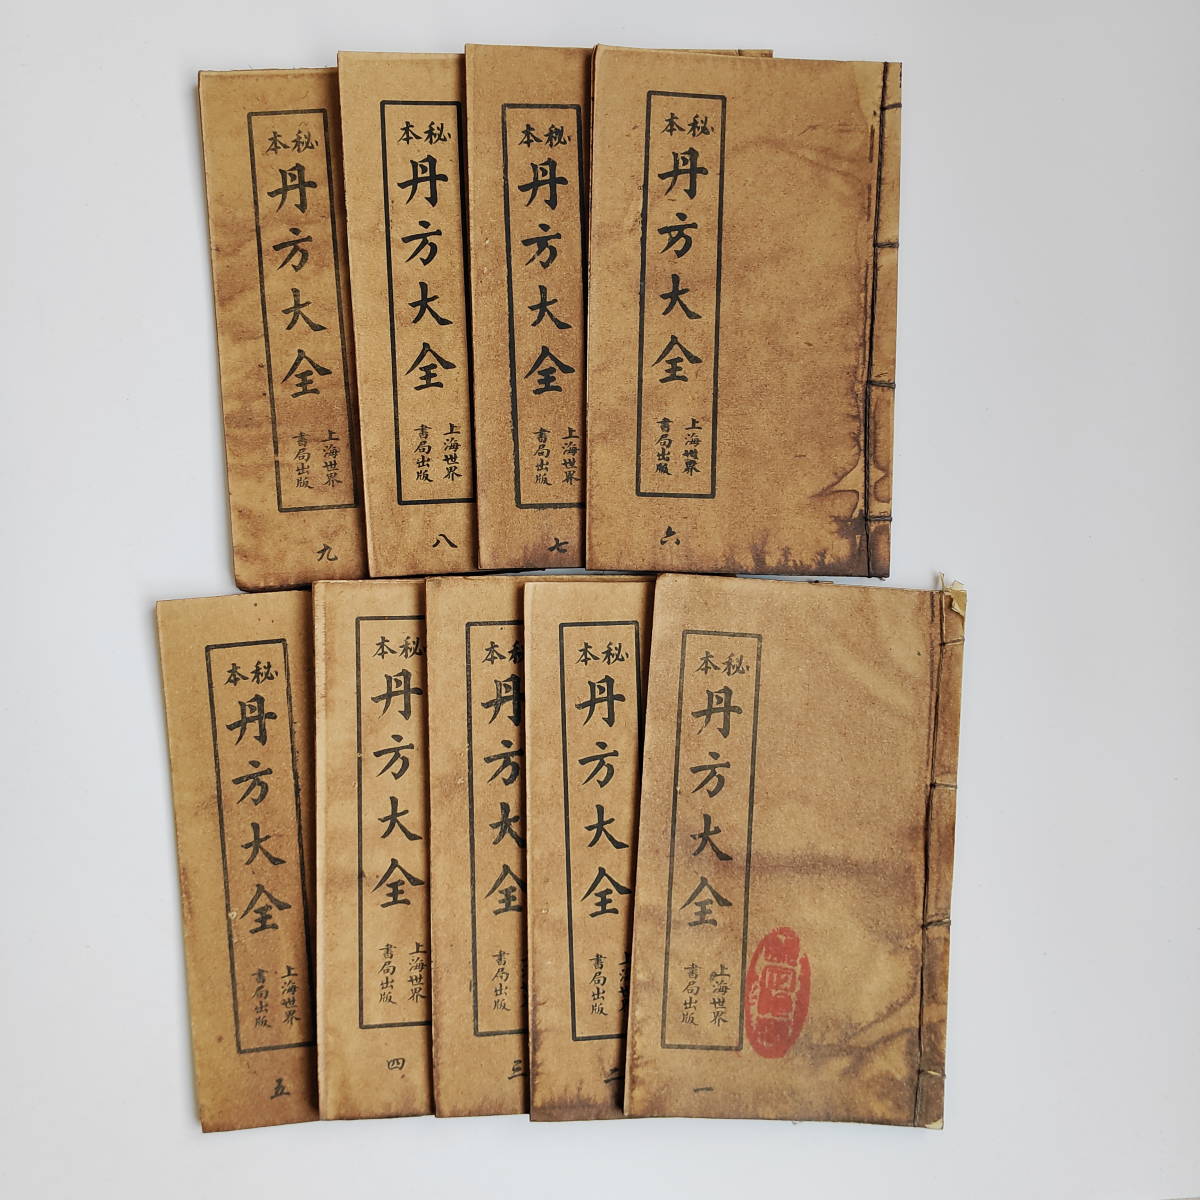 秘本
丹方大全
上海世界
書局出版
六
秘本
丹方大全
上海世界
書局出版
七
秘本
丹方大全
上海世界
書局出版
八
秘本
丹方大全
上海世界
書局出版
九
秘本
丹方大全
上海世界
書局出版
一
秘本
丹方大全
上海世界
書局出版
二
秘本
丹方大全
書局出版
三
秘本
丹方大全
上海世界
書局出版
四
秘本
丹方大全
上海世界
書局出版
五